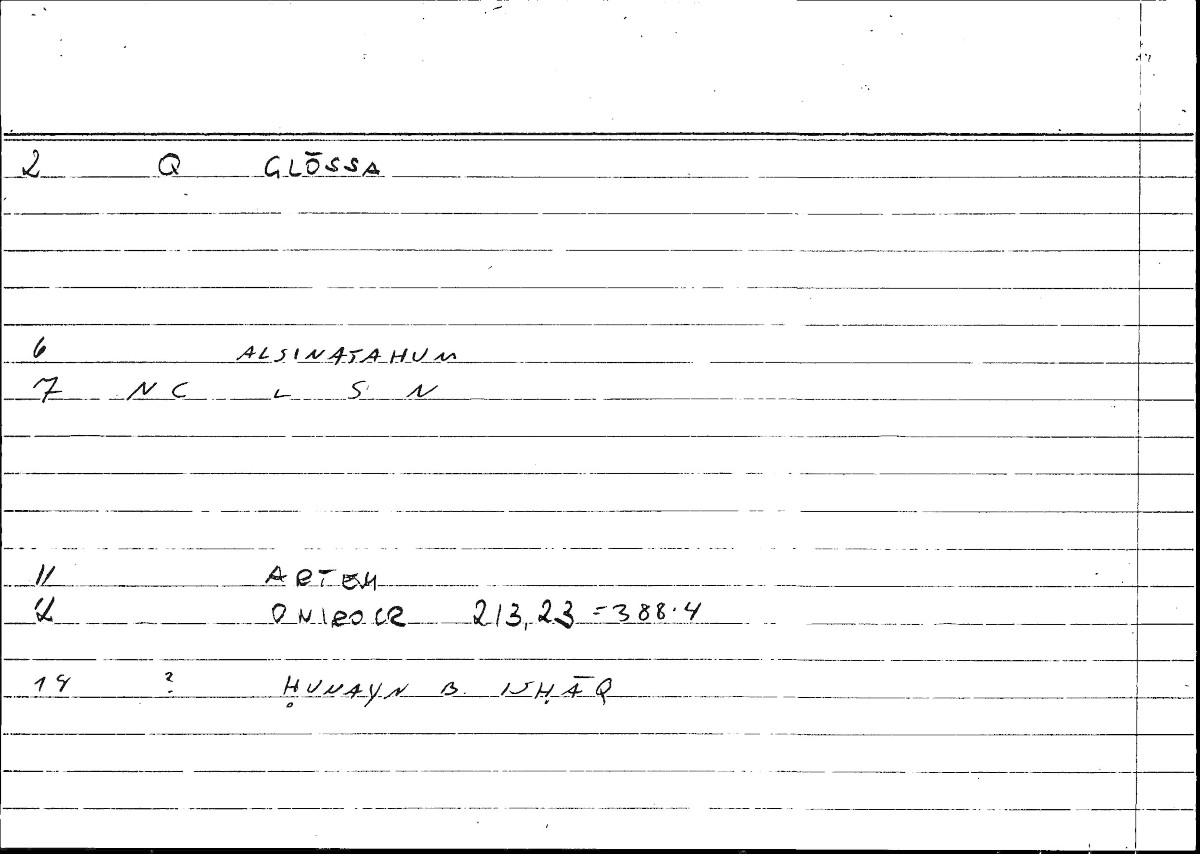 2 Q GLŌSSA
6 ALSINATAHUM
7 NC L S N
11 ARTEM
12 ONIROCR 213,23 = 388.4
14 ? ḤUNAYN B. ISḤĀQ